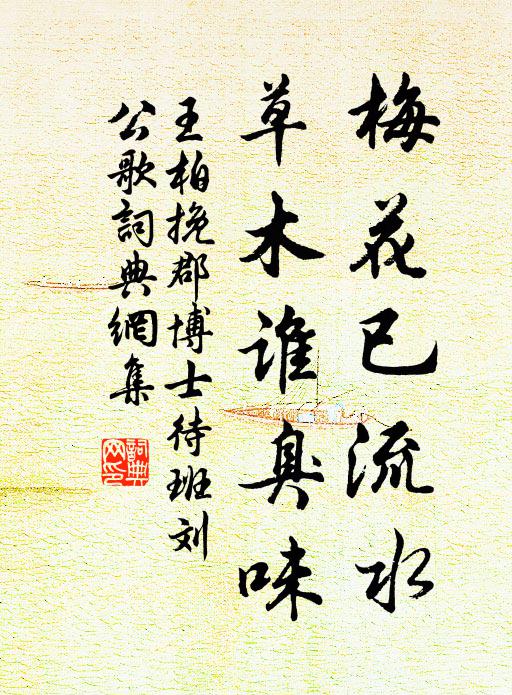 梅花已流水
草木谁臭味
王柏挽郡博士待班刘
公歌詞典網集
詞典
网印